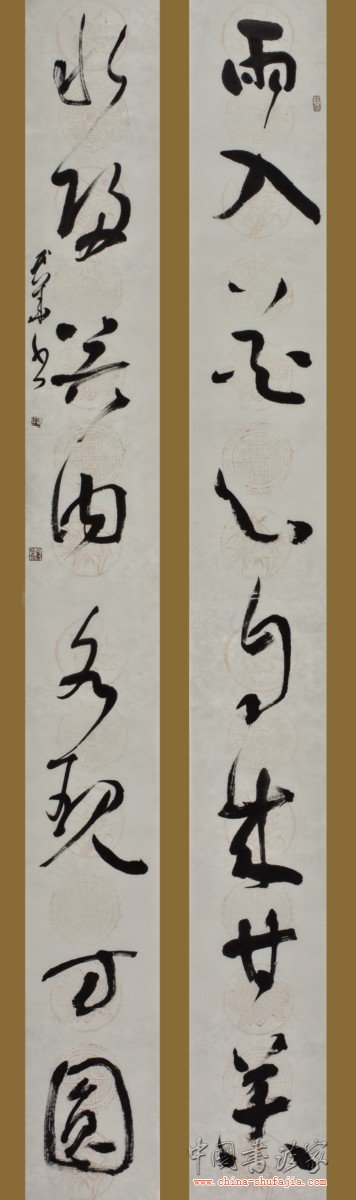 雨入花心自成甘苦
水歸器内各現方圓
中国书法家
www.china-shufajia.com